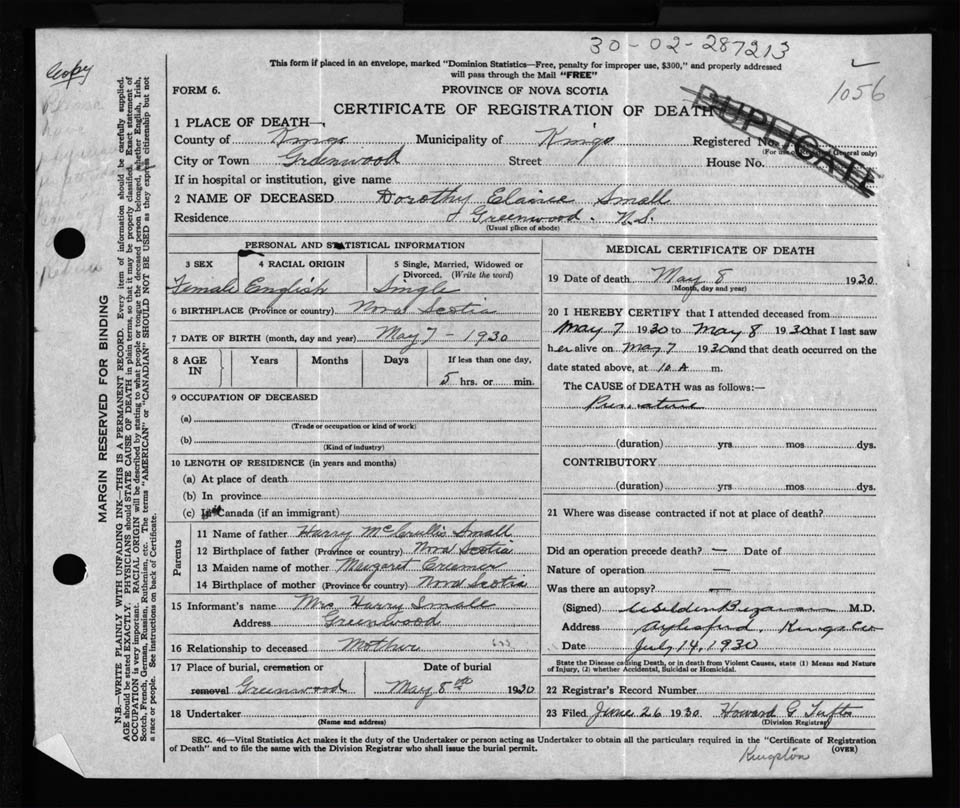 30-02-287213
This form if placed in an envelope, marked "Dominion Statistics—Free, penalty for improper use, $300," and properly addressed
will pass through the Mail "FREE"
Copy
1056
FORM 6.
PROVINCE OF NOVA SCOTIA
CERTIFICATE OF REGISTRATION OF DEATH
DUPLICATE
1 PLACE OF DEATH—
County of Kings Municipality of Kings Registered No.
City or Town Greenwood Street House No.
If in hospital or institution, give name
2 NAME OF DECEASED Dorothy Elaine Small
Residence Greenwood. N.S.
(Usual place of abode)
PERSONAL AND STATISTICAL INFORMATION
3 SEX 4 RACIAL ORIGIN 5 Single, Married, Widowed or Divorced. (Write the word)
Female English Single
6 BIRTHPLACE (Province or country) Nova Scotia
7 DATE OF BIRTH (month, day and year) May 7 - 1930
8 AGE IN Years Months Days If less than one day,
5 hrs. or min.
9 OCCUPATION OF DECEASED
(a)
(Trade or occupation or kind of work)
(b)
(Kind of industry)
10 LENGTH OF RESIDENCE (in years and months)
(a) At place of death
(b) In province
(c) In Canada (if an immigrant)
Parents
11 Name of father Harry Small
12 Birthplace of father (Province or country) Nova Scotia
13 Maiden name of mother Margaret Creamer
14 Birthplace of mother (Province or country) Nova Scotia
15 Informant's name Mrs Harry Small
Address Greenwood
16 Relationship to deceased Mother
17 Place of burial, cremation or Date of burial
removal Greenwood May 8th 1930
18 Undertaker
(Name and address)
MEDICAL CERTIFICATE OF DEATH
19 Date of death May 8 1930
(Month, day and year)
20 I HEREBY CERTIFY that I attended deceased from
May 7 1930 to May 8 1930 that I last saw
her alive on May 7 1930 and that death occurred on the
date stated above, at 10 A m.
The CAUSE of DEATH was as follows:—
Premature
(duration) yrs mos dys.
CONTRIBUTORY
(duration) yrs. mos. dys.
21 Where was disease contracted if not at place of death?
Did an operation precede death? — Date of
Nature of operation —
Was there an autopsy? —
(Signed) M.D.
Address Aylesford, Kings Co
Date July 14, 1930
State the Disease causing Death, or in death from Violent Causes, state (1) Means and Nature
of Injury, (2) whether Accidental, Suicidal or Homicidal.
22 Registrar's Record Number
23 Filed June 26 1930 Howard G Tufts
(Division Registrar)
SEC. 46—Vital Statistics Act makes it the duty of the Undertaker or person acting as Undertaker to obtain all the particulars required in the "Certificate of Registration
of Death" and to file the same with the Division Registrar who shall issue the burial permit.
(OVER)
Kingston
MARGIN RESERVED FOR BINDING
N.B.—WRITE PLAINLY WITH UNFADING INK—THIS IS A PERMANENT RECORD. Every item of information should be carefully supplied.
AGE should be stated EXACTLY. PHYSICIANS should STATE CAUSE OF DEATH in plain terms, so that it may be properly classified. Exact statement of
OCCUPATION is very important. RACIAL ORIGIN will be described by stating to what people or tongue the deceased person belonged, whether English, Irish,
Scotch, French, German, Russian, Ruthenian, etc. The terms "AMERICAN" or "CANADIAN" SHOULD NOT BE USED as they express citizenship but not
a race or people. See instructions on back of Certificate.